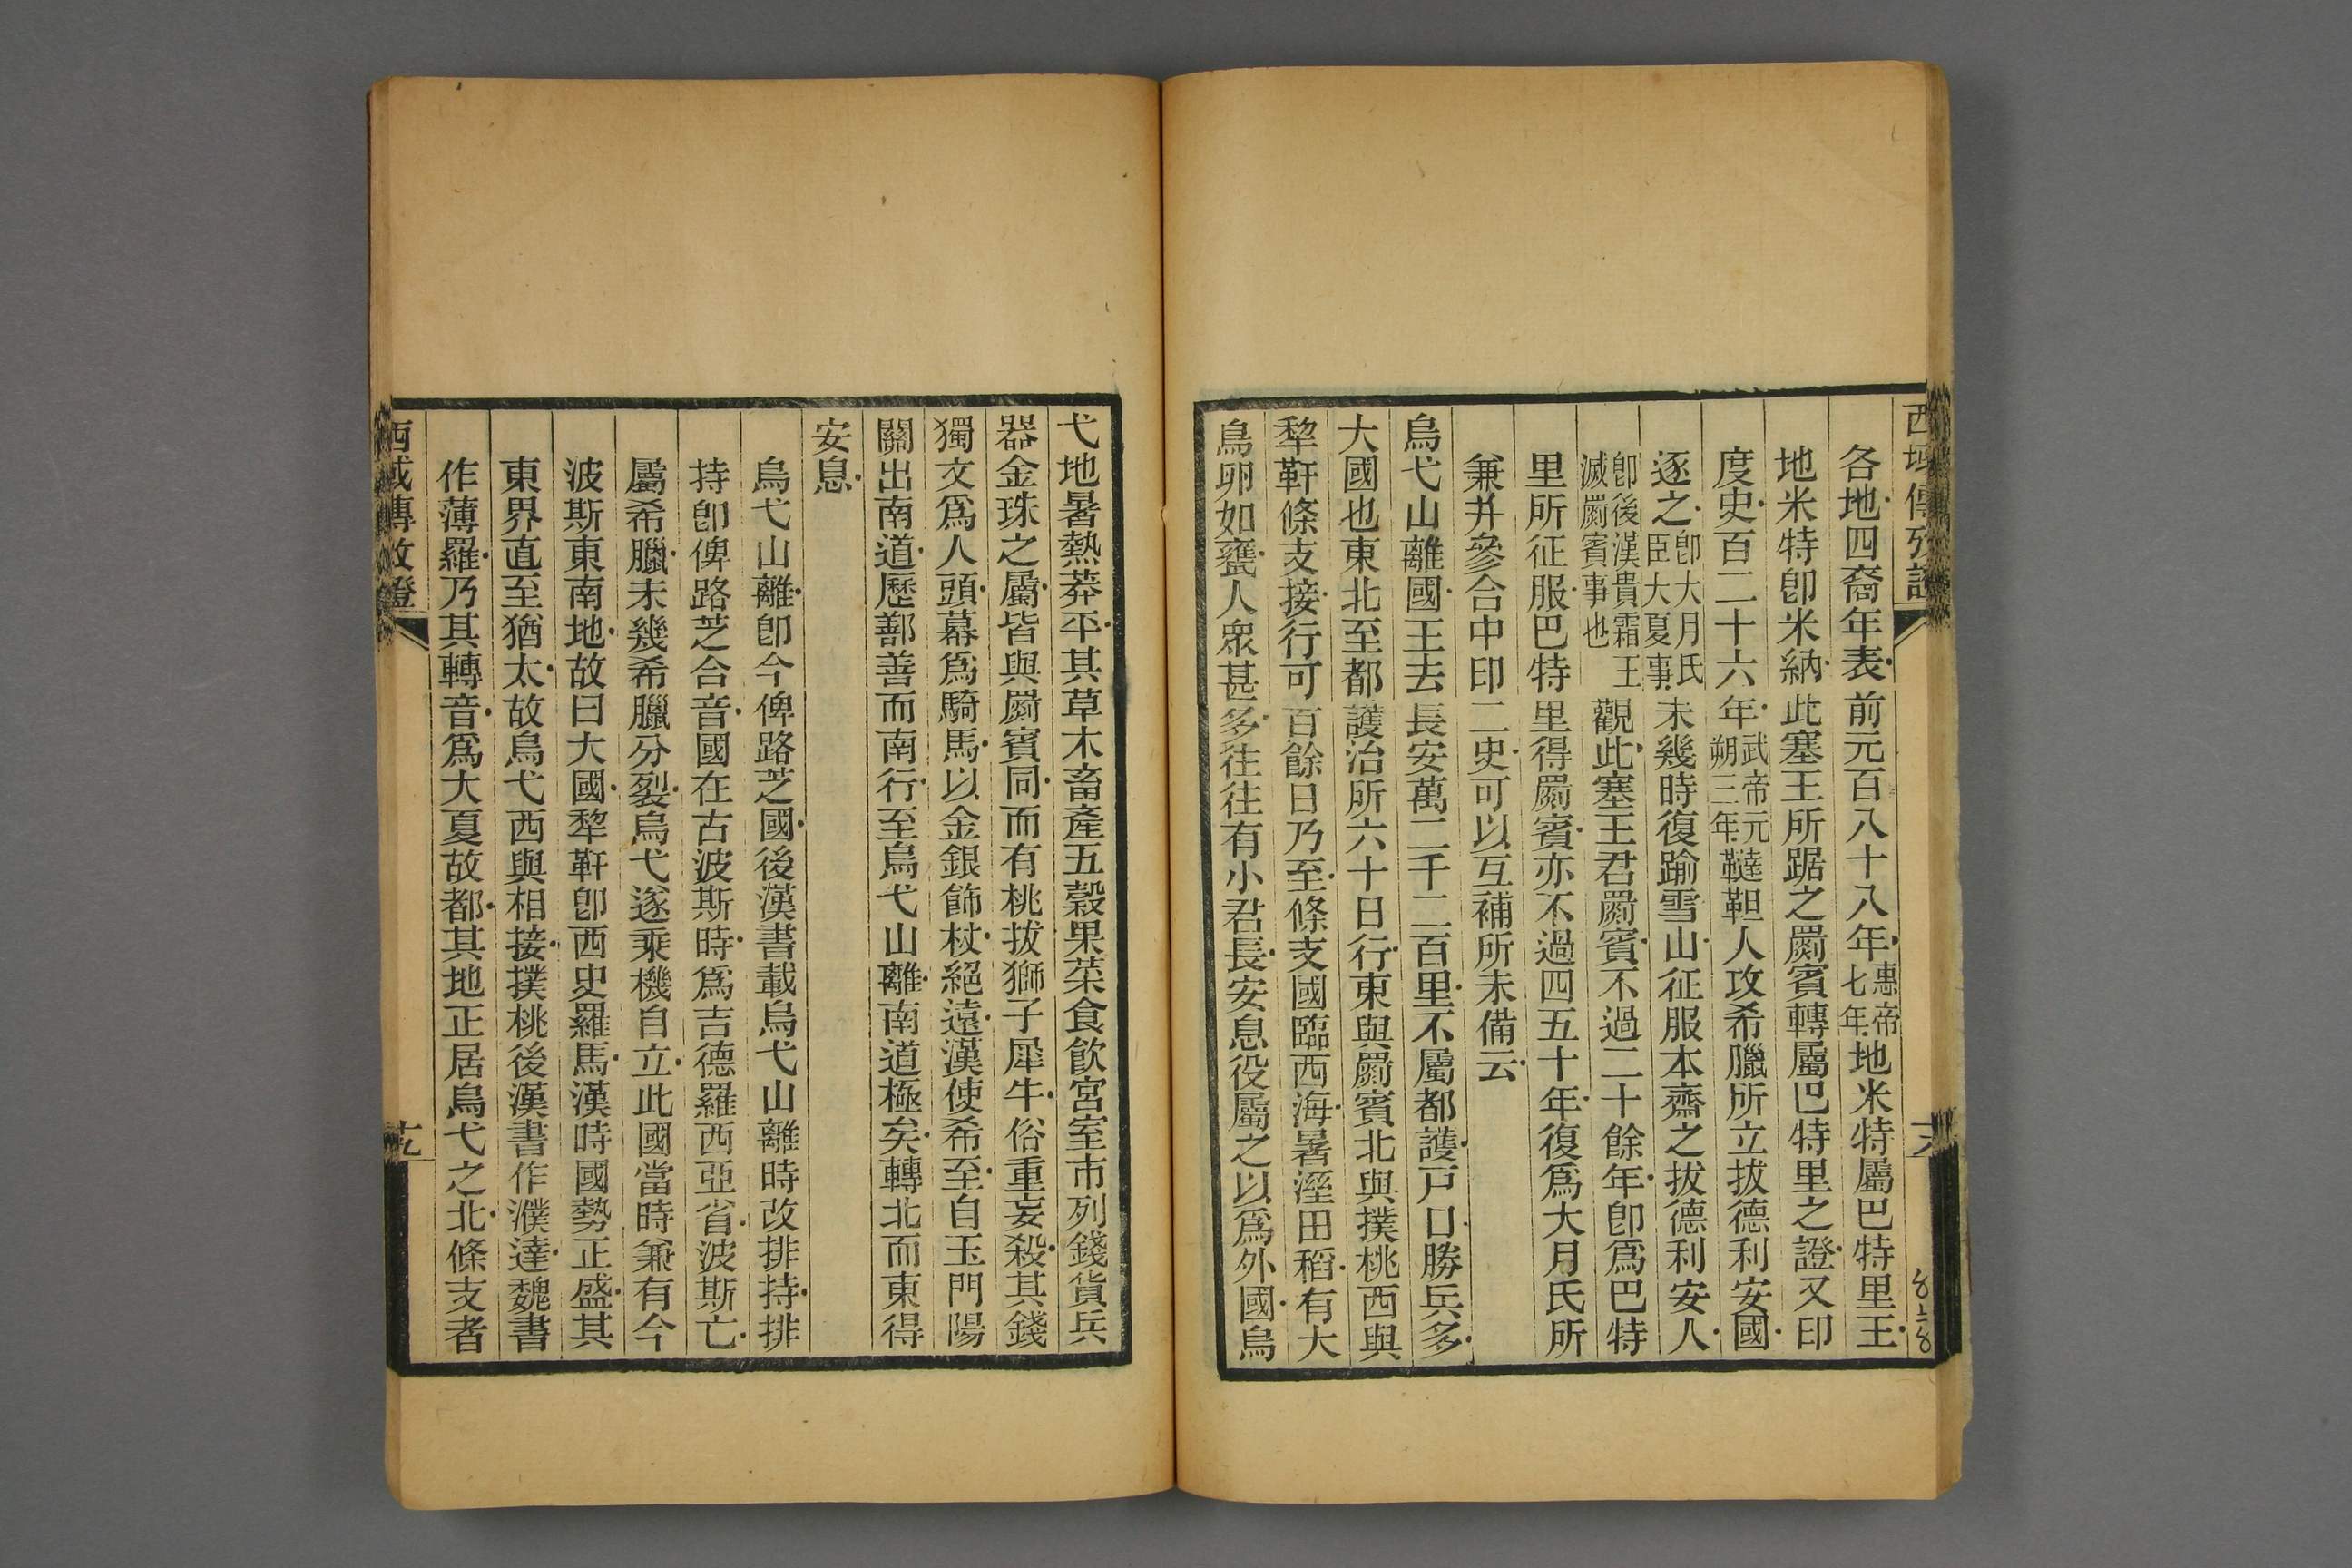 西域傳攷證
各地四裔年表前元百八十八年惠帝七年地米特屬巴特里王
地米特卽米納此塞王所踞之罽賓轉屬巴特里之證又印
度史百二十六年武帝元朔三年韃靼人攻希臘所立拔德利安國
逐之卽大月氏臣大夏事未幾時復踰雪山征服本齋之拔德利安人
卽後漢貴霜王滅罽賓事也觀此塞王君罽賓不過二十餘年卽爲巴特
里所征服巴特里得罽賓亦不過四五十年復爲大月氏所
兼幷參合中印二史可以互補所未備云
烏弋山離國王去長安萬二千二百里不屬都護戸口勝兵多
大國也東北至都護治所六十日行東與罽賓北與撲桃西與
犂靬條支接行可百餘日乃至條支國臨西海暑溼田稻有大
鳥卵如甕人衆甚多往往有小君長安息役屬之以爲外國烏
弋地暑熱莽平其草木畜產五穀果菜食飮宮室市列錢貨兵
器金珠之屬皆與罽賓同而有桃拔獅子犀牛俗重妄殺其錢
獨文爲人頭幕爲騎馬以金銀飾杖絕遠漢使希至自玉門陽
關出南道歷鄯善而南行至烏弋山離南道極矣轉北而東得
安息
烏弋山離卽今俾路芝國後漢書載烏弋山離時改排持排
持卽俾路芝合音國在古波斯時爲吉德羅西亞省波斯亡
屬希臘未幾希臘分裂烏弋遂乘機自立此國當時兼有今
波斯東南地故曰大國犂靬卽西史羅馬漢時國勢正盛其
東界直至猶太故烏弋西與相接撲桃後漢書作濮達魏書
作薄羅乃其轉音爲大夏故都其地正居烏弋之北條支者
西域傳攷證